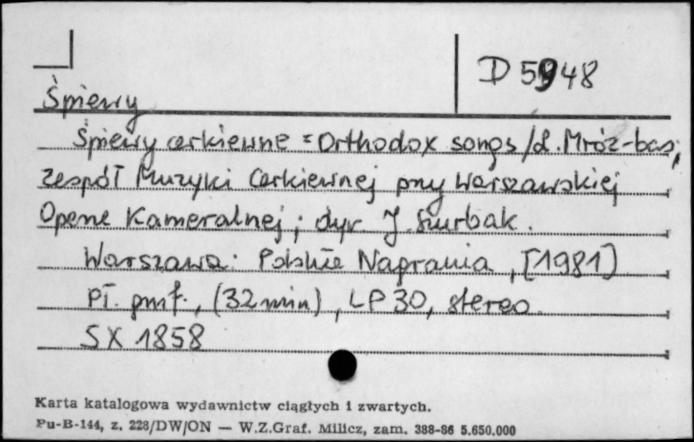 D 5948
Śpiewy
Śpiewy cerkiewne = Orthodox songs / L. Mróz-bas;
zespół Muzyki Cerkiewnej przy Warszawskiej
Operze Kameralnej; dyr. J. Szurbak.
Warszawa: Polskie Nagrania, [1981]
Pł. gramf., (32 min), LP 30, stereo.
SX 1858
Karta katalogowa wydawnictw ciągłych i zwartych.
Pu-B-144, z. 228/DW/ON — W.Z.Graf. Milicz, zam. 388-86 5.650.000